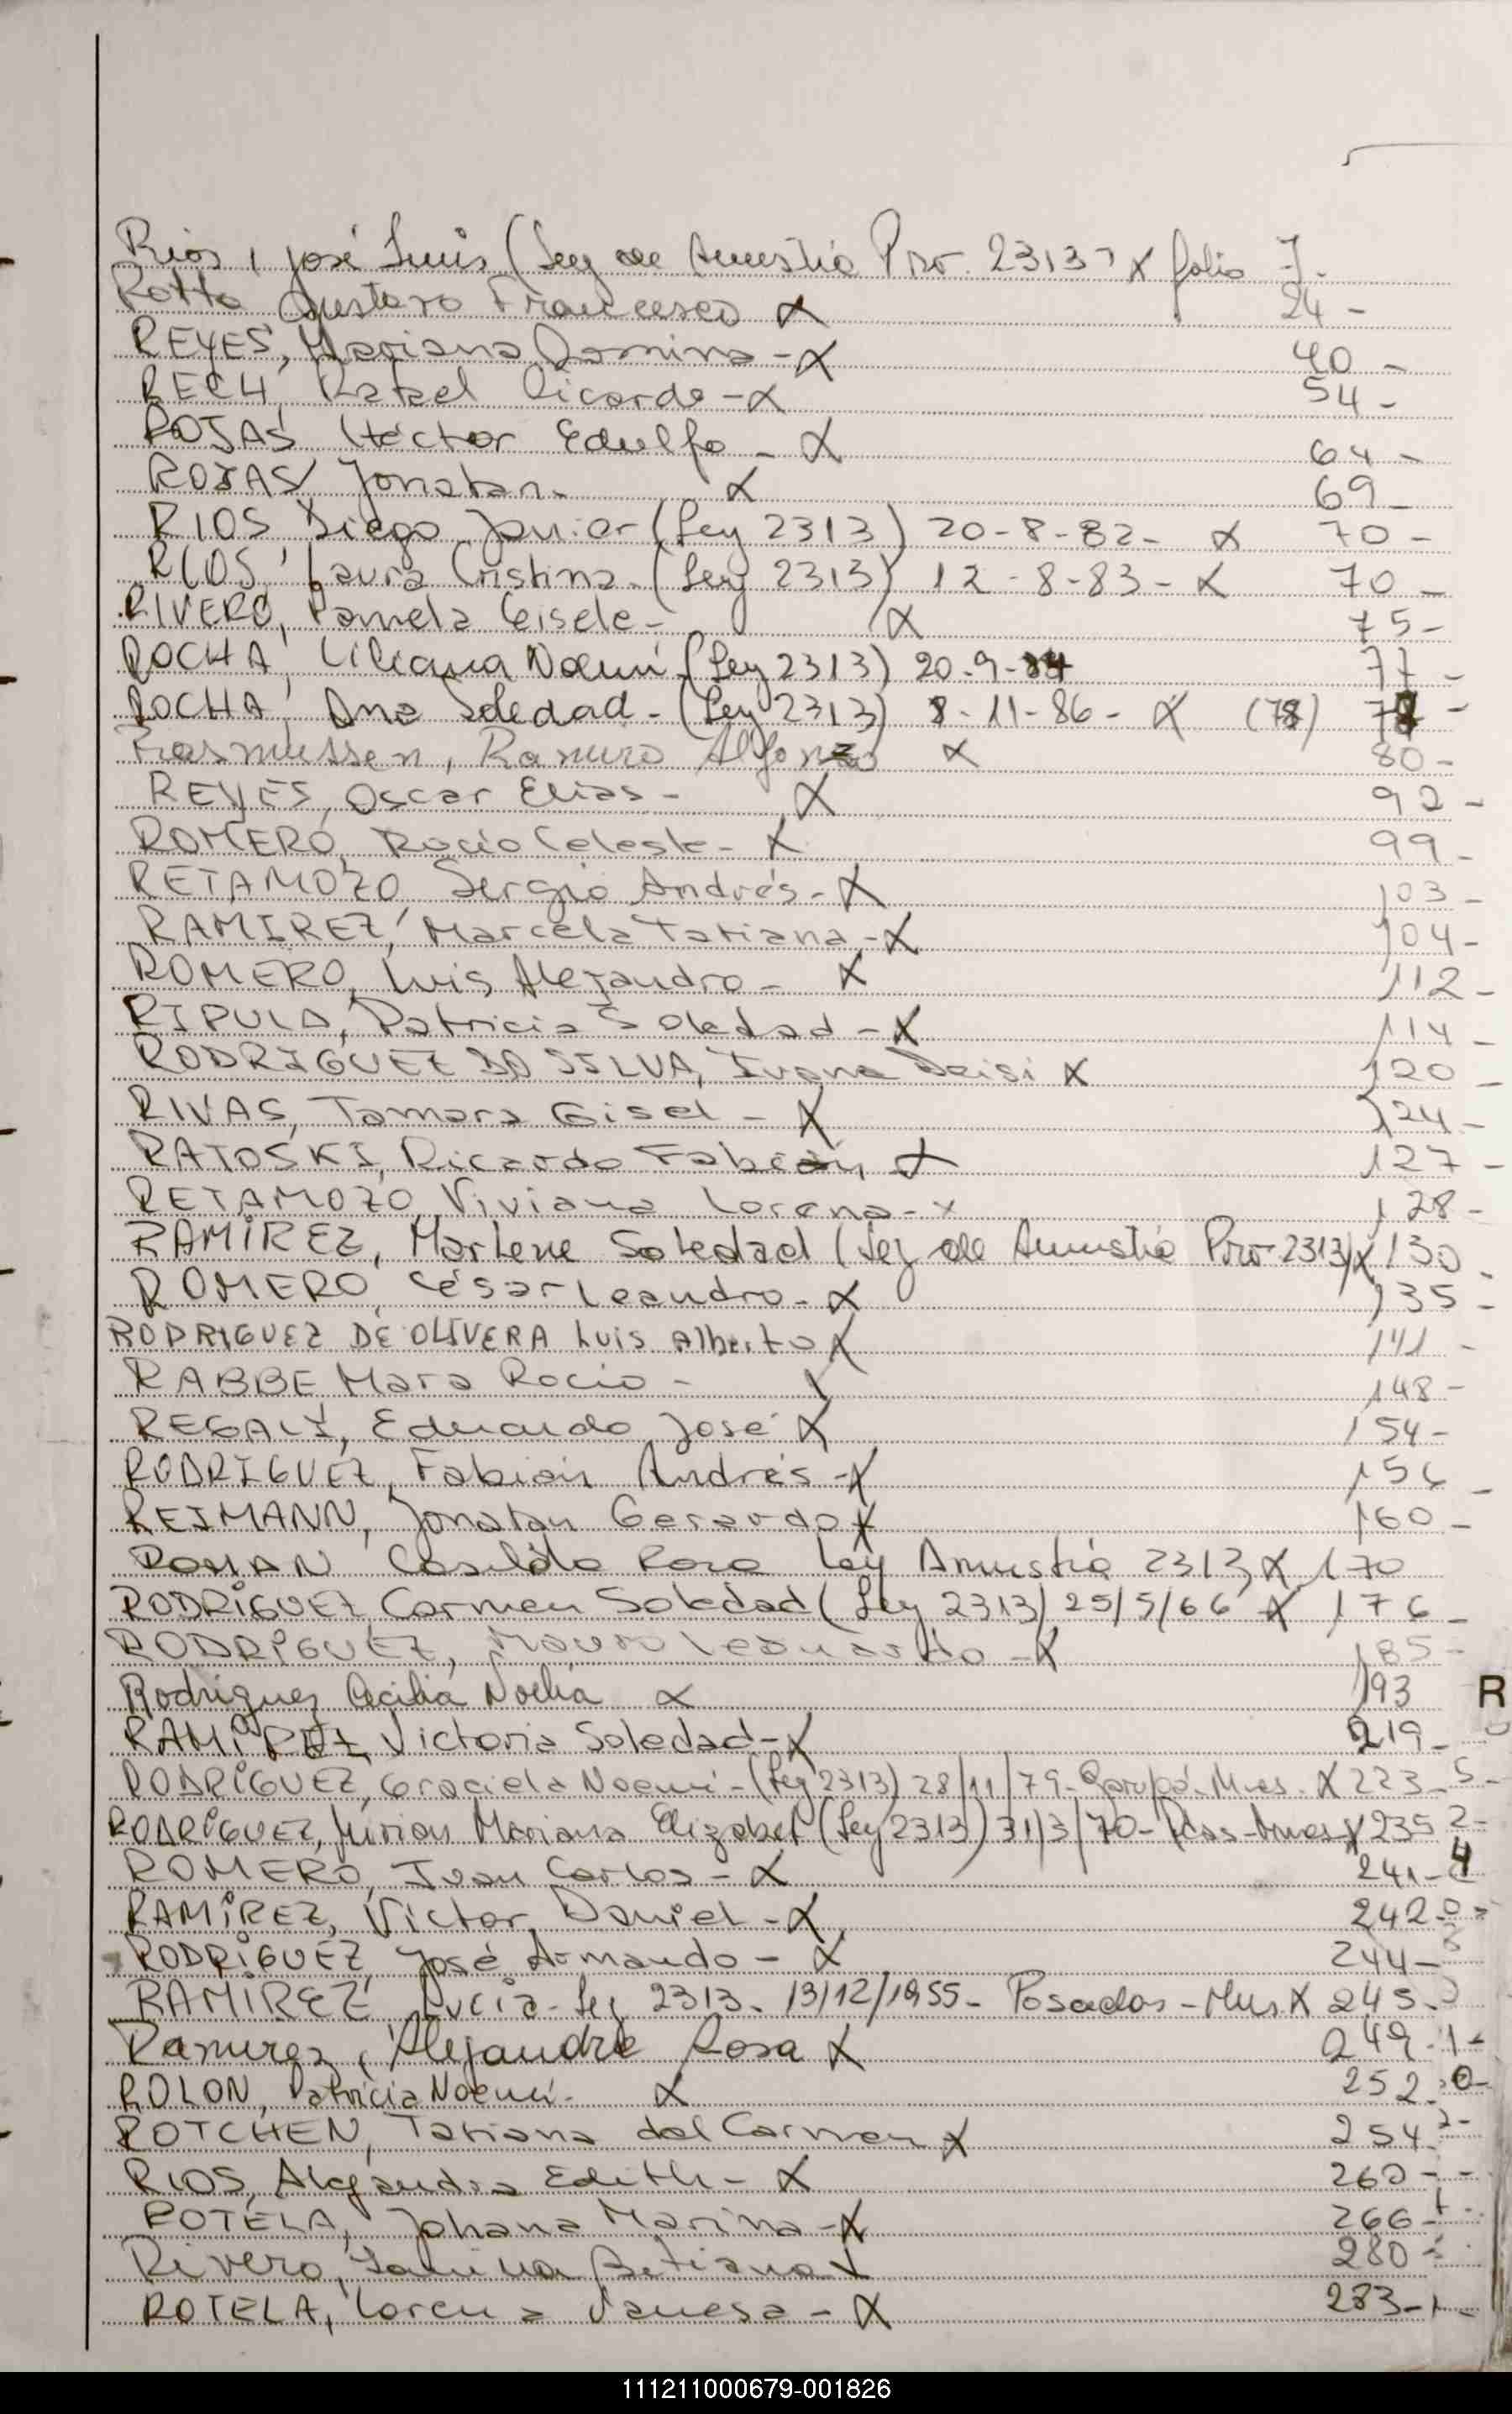 Rios, José Luis (Ley de Amnistía Pro. 2313) x folio 7.
Rotto Gustavo Francisco x 24 -
REYES, Mariana Romina - x 40 -
RECH, Rafael Ricardo - x 54 -
ROJAS, Héctor Edulfo - x 64 -
ROJAS, Jonatan. x 69 -
RIOS, Diego Javier (Ley 2313) 20-8-82- x 70 -
RIOS, Laura Cristina. (Ley 2313) 12-8-83- x 70 -
RIVERO, Pamela Gisele - x 75 -
ROCHA, Liliana Noemí. (Ley 2313) 20-9-84 77 -
ROCHA, Ana Soledad - (Ley 2313) 8-11-86- x (78) 78 -
Rasmussen, Ramiro Alfonzo x 80 -
REYES, Oscar Elias - x 92 -
ROMERO, Rocío Celeste - x 99 -
RETAMOZO, Sergio Andrés - x 103 -
RAMIREZ, Marcela Tatiana - x 104 -
ROMERO, Luis Alejandro - x 112 -
RIPULA, Patricia Soledad - x 114 -
RODRIGUEZ DA SILVA, Ivana Deisi x 120 -
RIVAS, Tamara Gisel - x 124 -
RATOSKI, Ricardo Fabián, x 127 -
RETAMOZO, Viviana Lorena - x 128 -
RAMÍREZ, Marlene Soledad (Ley de Amnistía Pro 2313) x 130 -
ROMERO, César Leandro - x 135 -
RODRIGUEZ DE OLIVERA Luis Alberto x 141 -
RABBE Mara Rocio - x 148 -
REGALI, Eduardo José x 154 -
RODRIGUEZ, Fabián Andrés - x 156 -
REIMANN, Jonatan Gerardo x 160 -
ROMAN Casilda Rosa Ley Amnistía 2313 x 170
RODRÍGUEZ, Carmen Soledad (Ley 2313) 25/5/66 x 176 -
RODRÍGUEZ, Mauro Leonardo - x 185 -
Rodriguez Cecilia Noelia x 193 R
RAMÍREZ, Victoria Soledad - x 219 -
RODRÍGUEZ, Graciela Noemí - (Ley 2313) 28/11/79 - Garupá - Mnes. x 223 - 5 -
RODRÍGUEZ, Mirian Mariana Elizabet (Ley 2313) 31/3/70 - Pdas - Mnes x 235 2 -
ROMERO, Juan Carlos - x 241 - 4
RAMÍREZ, Victor Daniel - x 242 - 0 -
RODRÍGUEZ, José Armando - x 244 -
RAMÍREZ, Lucía - Ley 2313 - 13/12/1955 - Posadas - Mnes x 245 -
Ramirez, Alejandra Rosa x 249 - 1 -
ROLON, Patricia Noemí - x 252 0 -
ROTCHEN, Tatiana del Carmen x 254 2 -
RIOS, Alejandra Edith - x 260 - -
ROTELA, Johana Marina - x 266 -
Rivero, Yanina Betiana x 280 -
ROTELA, Lorena Vanesa - x 283 - 1 -
111211000679-001826